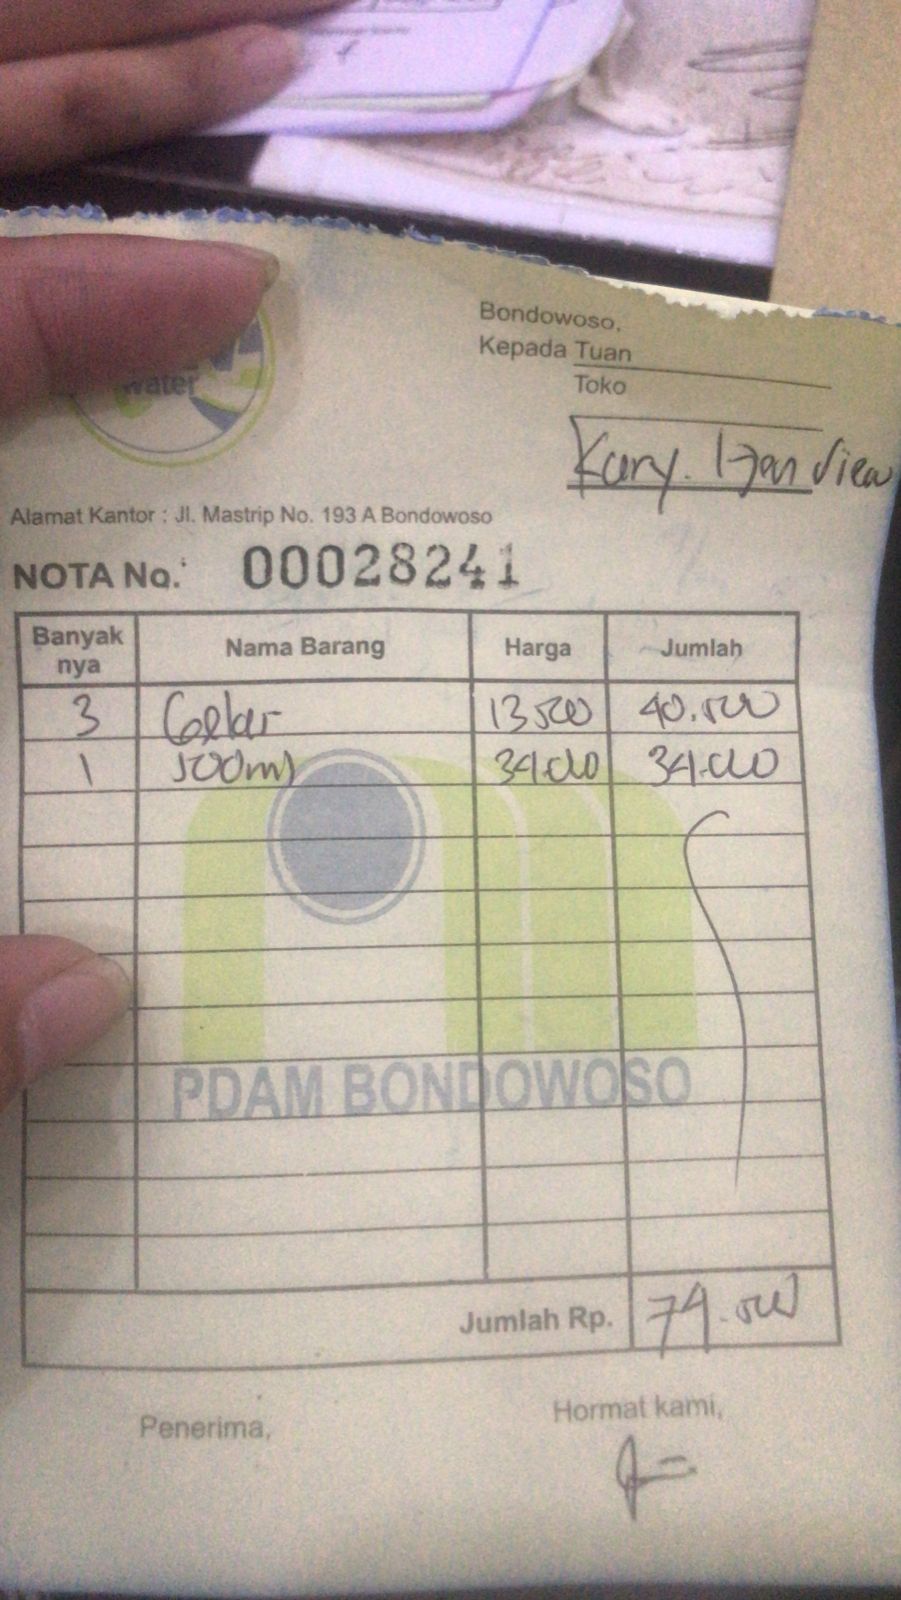 water
Bondowoso,
Kepada Tuan
Toko
Kary. Ijen View
Alamat Kantor : Jl. Mastrip No. 193 A Bondowoso
NOTA No. 00028241
Banyak nya Nama Barang Harga Jumlah
3 Gelas 13.500 40.500
1 500ml 34.000 34.000
PDAM BONDOWOSO
Jumlah Rp. 74.500
Penerima, Hormat kami,